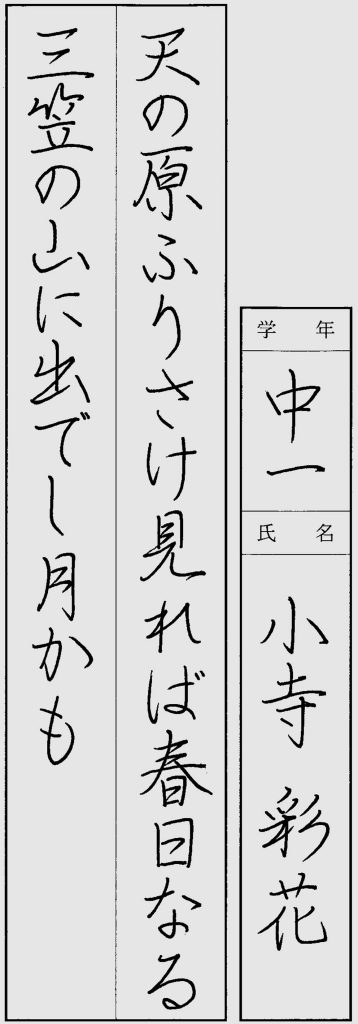 学年
中一
氏名
小寺 彩花
天の原ふりさけ見れば春日なる
三笠の山に出でし月かも